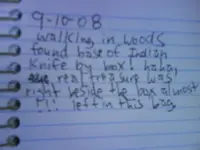 9-10-08
walking in woods
found base of Indian
Knife by box! haha,
real treasure was
right beside the box almost
!!! left in this bag